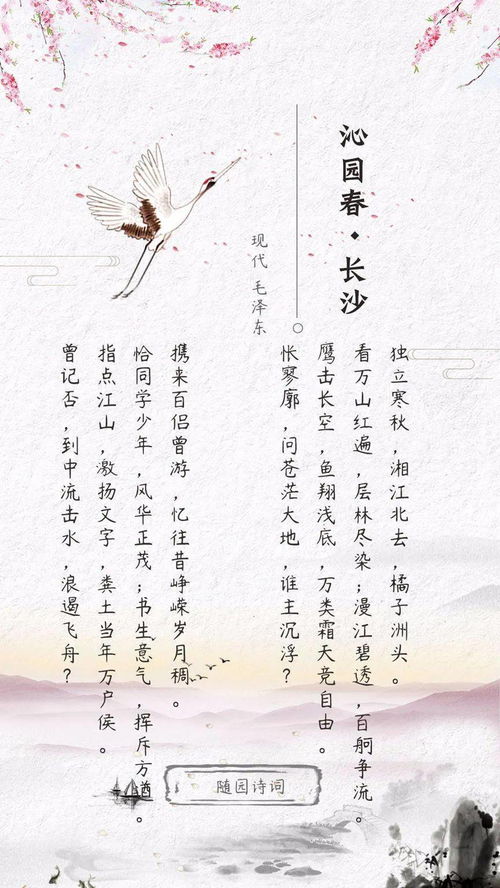 沁园春·长沙
现代 毛泽东
独立寒秋，湘江北去，橘子洲头。
看万山红遍，层林尽染；漫江碧透，百舸争流。
鹰击长空，鱼翔浅底，万类霜天竞自由。
怅寥廓，问苍茫大地，谁主沉浮？
携来百侣曾游，忆往昔峥嵘岁月稠。
恰同学少年，风华正茂；书生意气，挥斥方遒。
指点江山，激扬文字，粪土当年万户侯。
曾记否，到中流击水，浪遏飞舟？
随园诗词